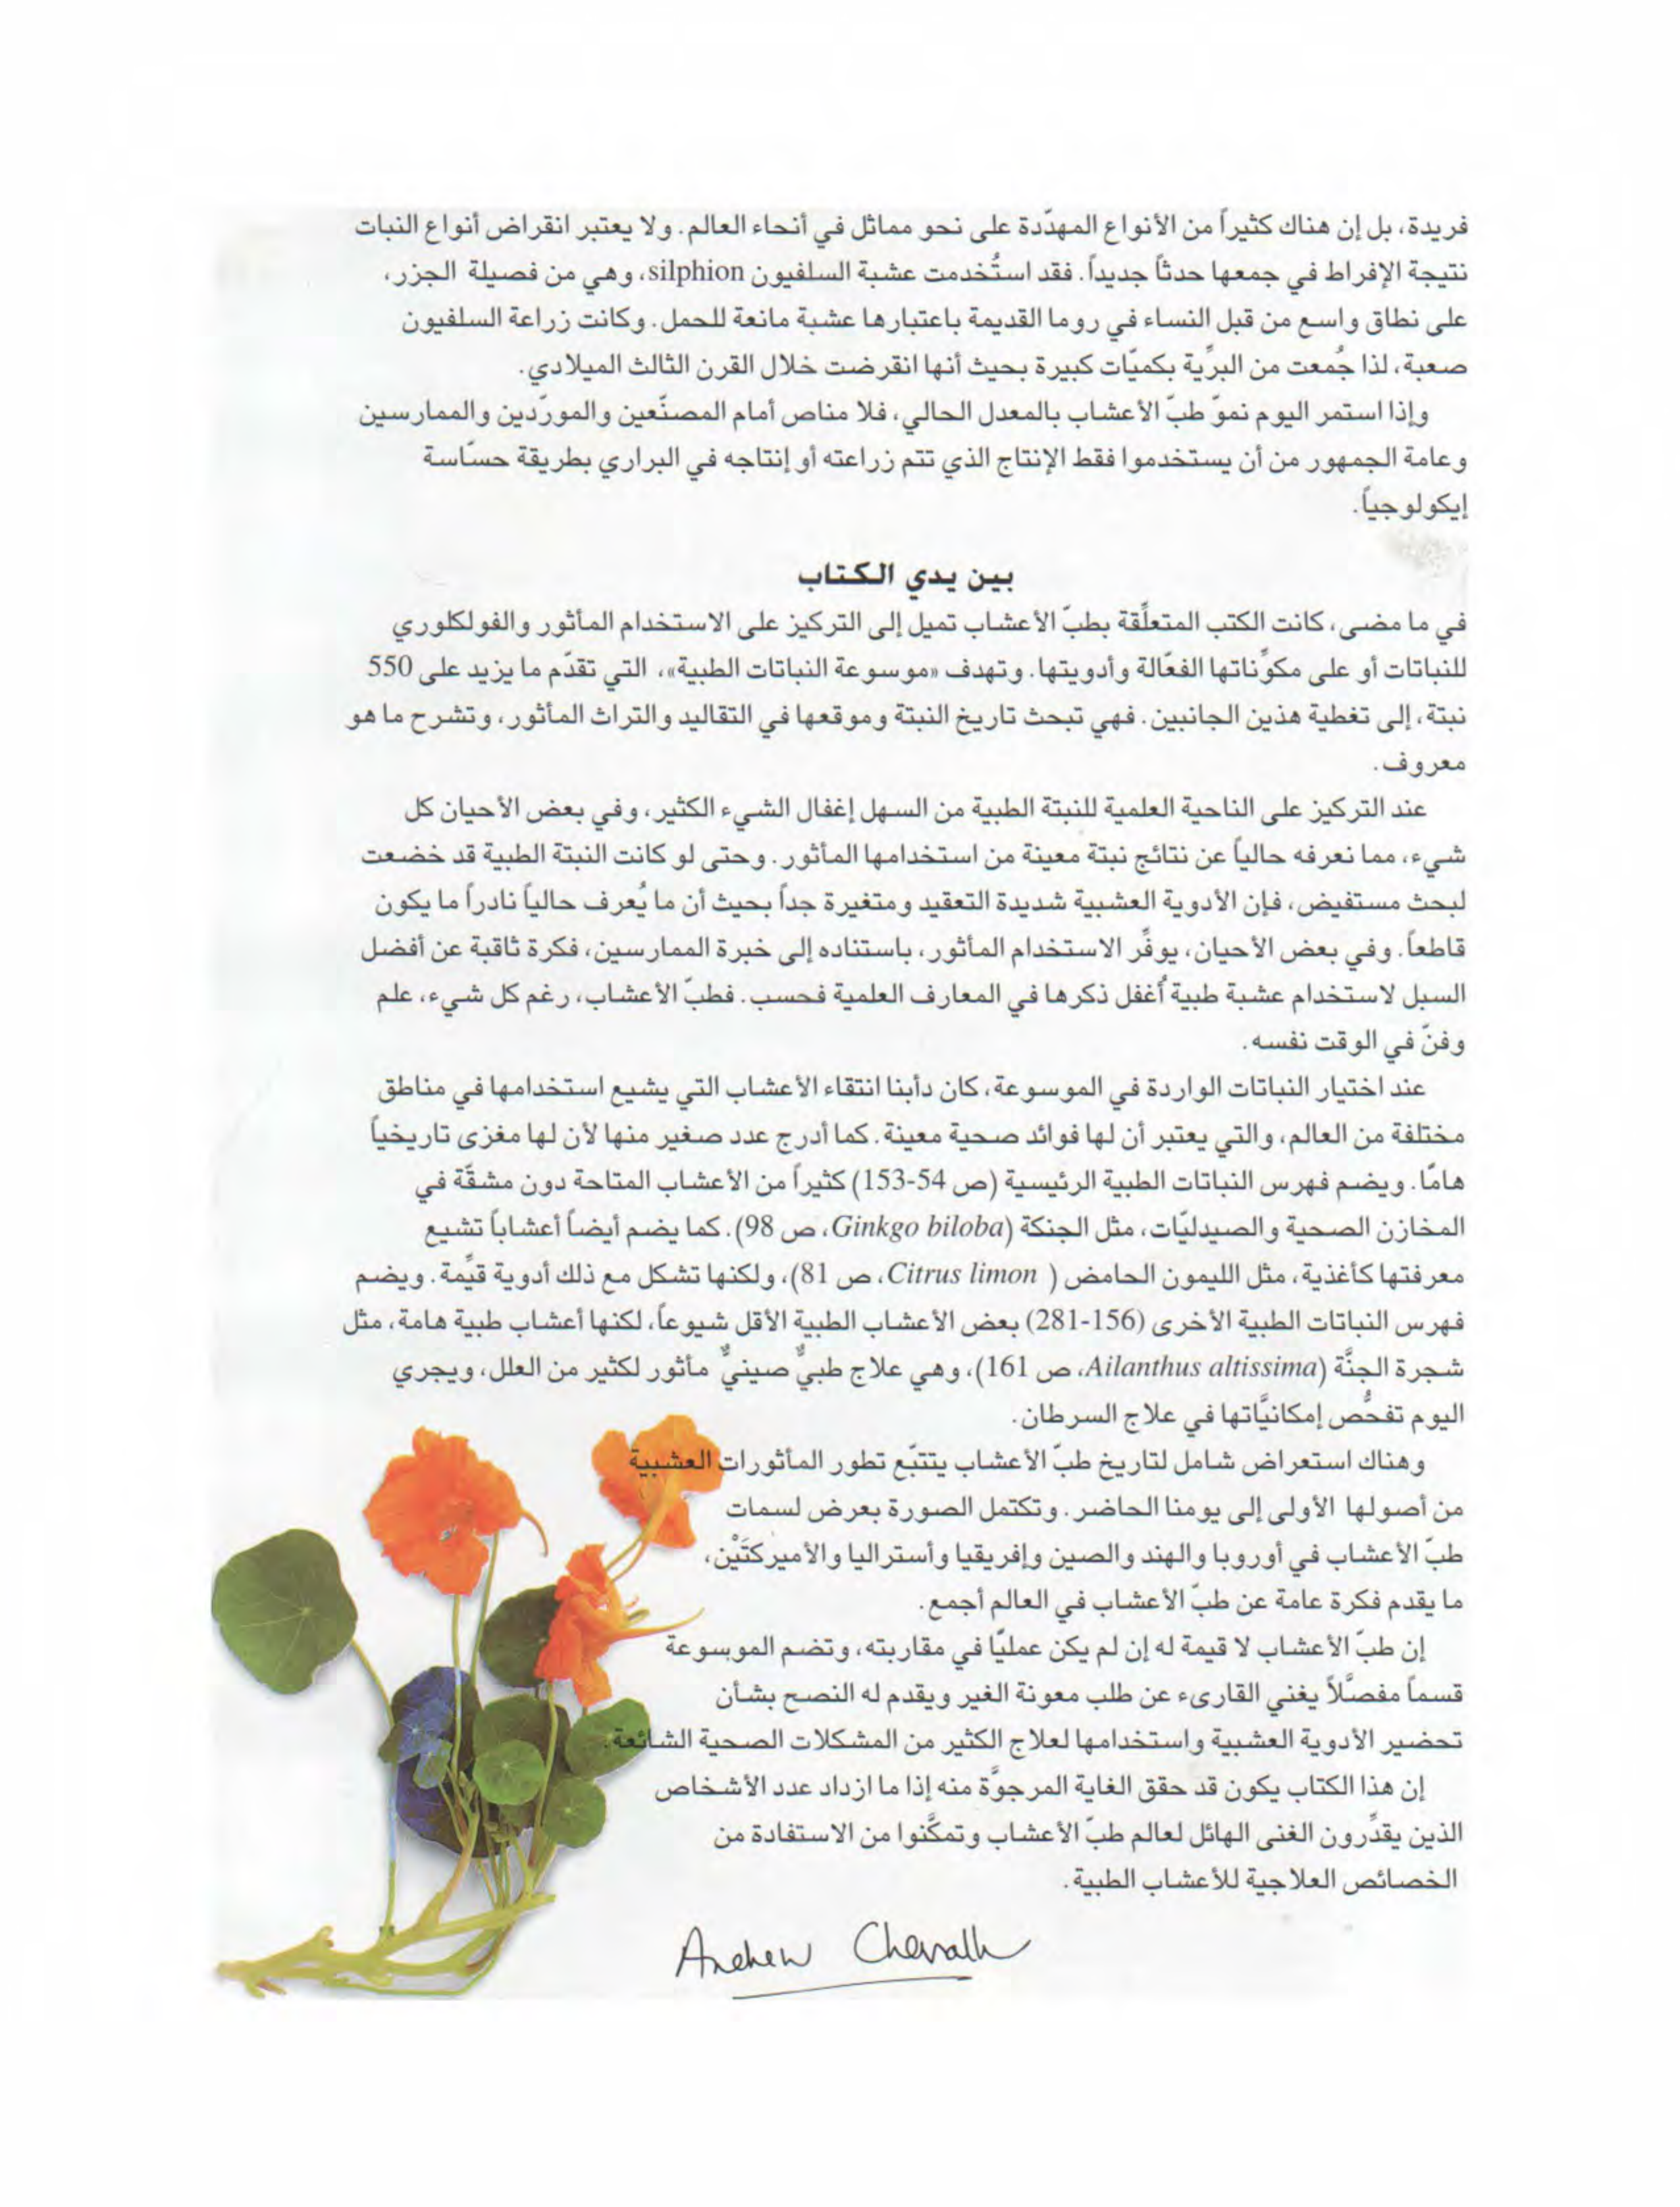 فريدة، بل إن هناك كثيراً من الأنواع المهدّدة على نحو مماثل في أنحاء العالم. ولا يعتبر انقراض أنواع النبات
نتيجة الإفراط في جمعها حدثاً جديداً. فقد استُخدمت عشبة السلفيون silphion، وهي من فصيلة الجزر،
على نطاق واسع من قبل النساء في روما القديمة باعتبارها عشبة مانعة للحمل. وكانت زراعة السلفيون
صعبة، لذا جُمعت من البرِّية بكميّات كبيرة بحيث أنها انقرضت خلال القرن الثالث الميلادي.
وإذا استمر اليوم نموّ طبّ الأعشاب بالمعدل الحالي، فلا مناص أمام المصنّعين والمورّدين والممارسين
وعامة الجمهور من أن يستخدموا فقط الإنتاج الذي تتم زراعته أو إنتاجه في البراري بطريقة حسّاسة
إيكولوجياً.
بين يدي الكتاب
في ما مضى، كانت الكتب المتعلِّقة بطبّ الأعشاب تميل إلى التركيز على الاستخدام المأثور والفولكلوري
للنباتات أو على مكوِّناتها الفعّالة وأدويتها. وتهدف «موسوعة النباتات الطبية»، التي تقدّم ما يزيد على 550
نبتة، إلى تغطية هذين الجانبين. فهي تبحث تاريخ النبتة وموقعها في التقاليد والتراث المأثور، وتشرح ما هو
معروف.
عند التركيز على الناحية العلمية للنبتة الطبية من السهل إغفال الشيء الكثير، وفي بعض الأحيان كل
شيء، مما نعرفه حالياً عن نتائج نبتة معينة من استخدامها المأثور. وحتى لو كانت النبتة الطبية قد خضعت
لبحث مستفيض، فإن الأدوية العشبية شديدة التعقيد ومتغيرة جداً بحيث أن ما يُعرف حالياً نادراً ما يكون
قاطعاً. وفي بعض الأحيان، يوفِّر الاستخدام المأثور، باستناده إلى خبرة الممارسين، فكرة ثاقبة عن أفضل
السبل لاستخدام عشبة طبية أُغفل ذكرها في المعارف العلمية فحسب. فطبّ الأعشاب، رغم كل شيء، علم
وفنّ في الوقت نفسه.
عند اختيار النباتات الواردة في الموسوعة، كان دأبنا انتقاء الأعشاب التي يشيع استخدامها في مناطق
مختلفة من العالم، والتي يعتبر أن لها فوائد صحية معينة. كما أدرج عدد صغير منها لأن لها مغزى تاريخياً
هامّا. ويضم فهرس النباتات الطبية الرئيسية (ص 54-153) كثيراً من الأعشاب المتاحة دون مشقّة في
المخازن الصحية والصيدليّات، مثل الجنكة (Ginkgo biloba، ص 98). كما يضم أيضاً أعشاباً تشيع
معرفتها كأغذية، مثل الليمون الحامض ( Citrus limon، ص 81)، ولكنها تشكل مع ذلك أدوية قيِّمة. ويضم
فهرس النباتات الطبية الأخرى (156-281) بعض الأعشاب الطبية الأقل شيوعاً، لكنها أعشاب طبية هامة، مثل
شجرة الجنَّة (Ailanthus altissima، ص 161)، وهي علاج طبيٌّ صينيٌّ مأثور لكثير من العلل، ويجري
اليوم تفحُّص إمكانيَّاتها في علاج السرطان.
وهناك استعراض شامل لتاريخ طبّ الأعشاب يتتبّع تطور المأثورات العشبية
من أصولها الأولى إلى يومنا الحاضر. وتكتمل الصورة بعرض لسمات
طبّ الأعشاب في أوروبا والهند والصين وإفريقيا وأستراليا والأميركتَيْن،
ما يقدم فكرة عامة عن طبّ الأعشاب في العالم أجمع.
إن طبّ الأعشاب لا قيمة له إن لم يكن عمليّا في مقاربته، وتضم الموسوعة
قسماً مفصَّلاً يغني القارىء عن طلب معونة الغير ويقدم له النصح بشأن
تحضير الأدوية العشبية واستخدامها لعلاج الكثير من المشكلات الصحية الشائعة.
إن هذا الكتاب يكون قد حقق الغاية المرجوَّة منه إذا ما ازداد عدد الأشخاص
الذين يقدِّرون الغنى الهائل لعالم طبّ الأعشاب وتمكَّنوا من الاستفادة من
الخصائص العلاجية للأعشاب الطبية.
Andrew